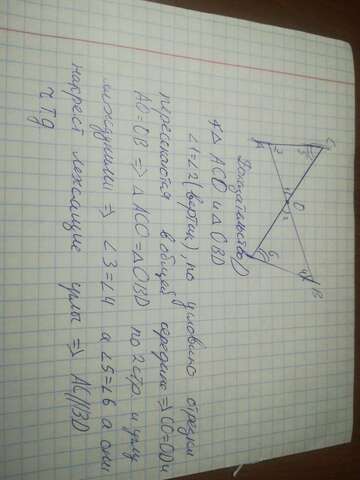 C B
3 4
O
1 2
A 5 6 D
Доказательство
*△ ACO и △ OBD
∠1=∠2 (вертик), по условию отрезки
пересекаются в общей середине ⇒ CO=OD и
AO=OB ⇒ △ ACO=△OBD по 2 стр и углу
между ними ⇒ ∠3=∠4 а ∠5=∠6 а они
накрест лежащие углы ⇒ AC||BD
чтд